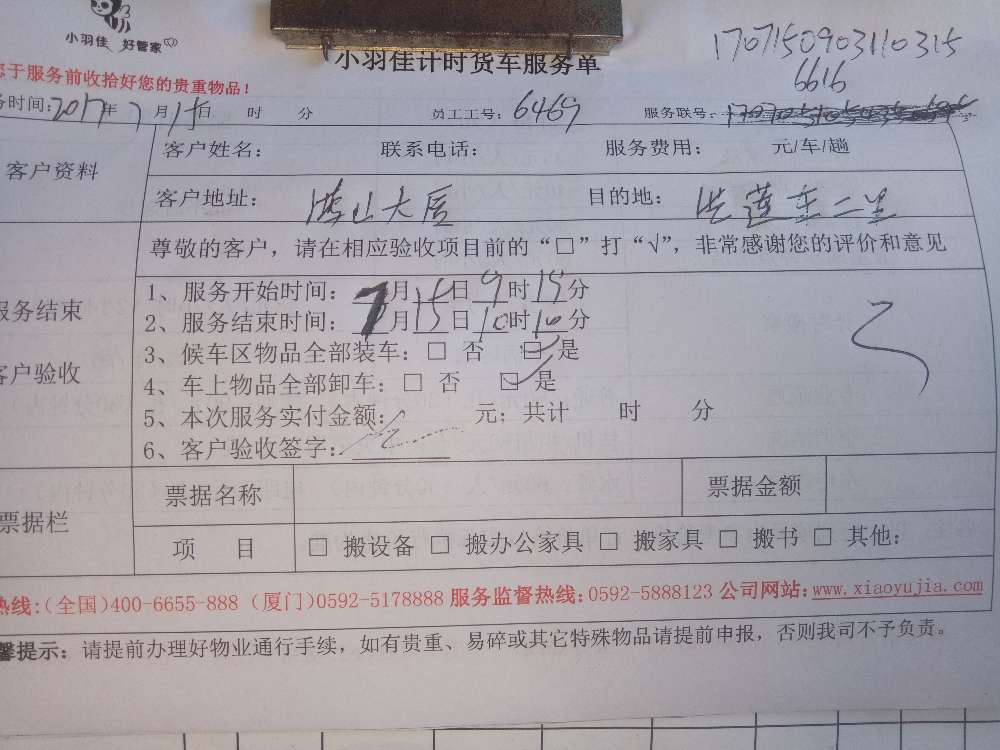 小羽佳 好管家
小羽佳计时货车服务单
1707150903110315
6616
您于服务前收拾好您的贵重物品!
务时间:2017年7月15日 时 分 员工工号:6469 服务联号:
客户资料
客户姓名: 联系电话: 服务费用: 元/车/趟
客户地址: 鸿山大厦 目的地: 莲
尊敬的客户，请在相应验收项目前的“□”打“√”，非常感谢您的评价和意见
服务结束
客户验收
1、服务开始时间: 7月15日9时15分
2、服务结束时间: 7月15日10时10分
3、候车区物品全部装车: □ 否 ☑是
4、车上物品全部卸车: □ 否 ☑ 是
5、本次服务实付金额: 元; 共计 时 分
6、客户验收签字:
票据栏
票据名称 票据金额
项 目 □ 搬设备 □ 搬办公家具 □ 搬家具 □ 搬书 □ 其他:
热线:(全国)400-6655-888 (厦门)0592-5178888 服务监督热线:0592-5888123 公司网站:www.xiaoyujia.com
馨提示: 请提前办理好物业通行手续，如有贵重、易碎或其它特殊物品请提前申报，否则我司不予负责。